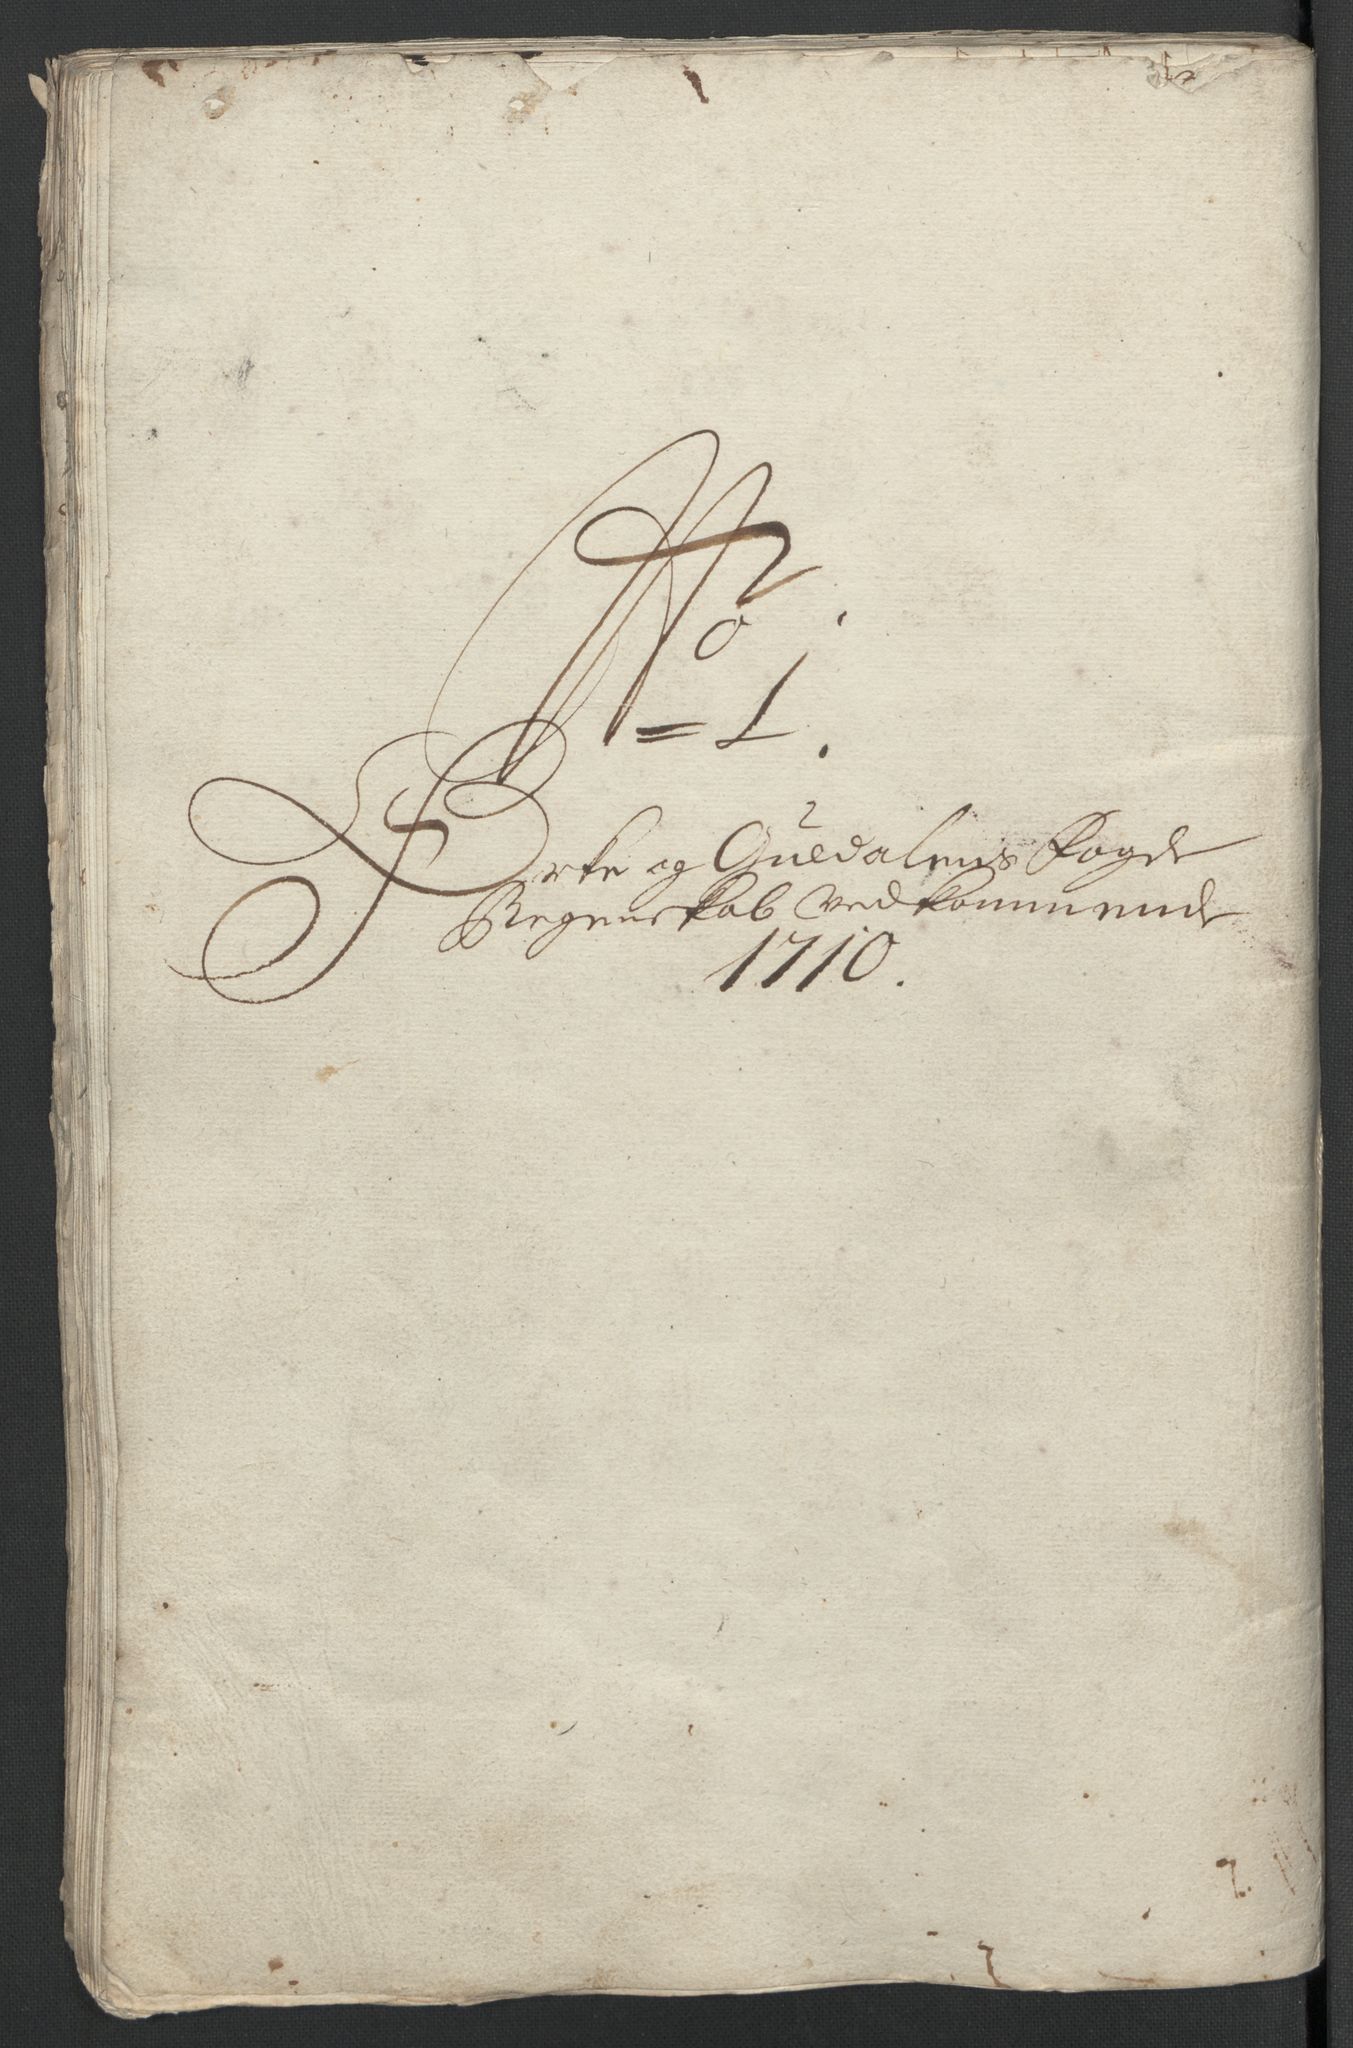 No
= 1.
Orke og Guldalens Fogde
Regenskab Vedkommende
1710.